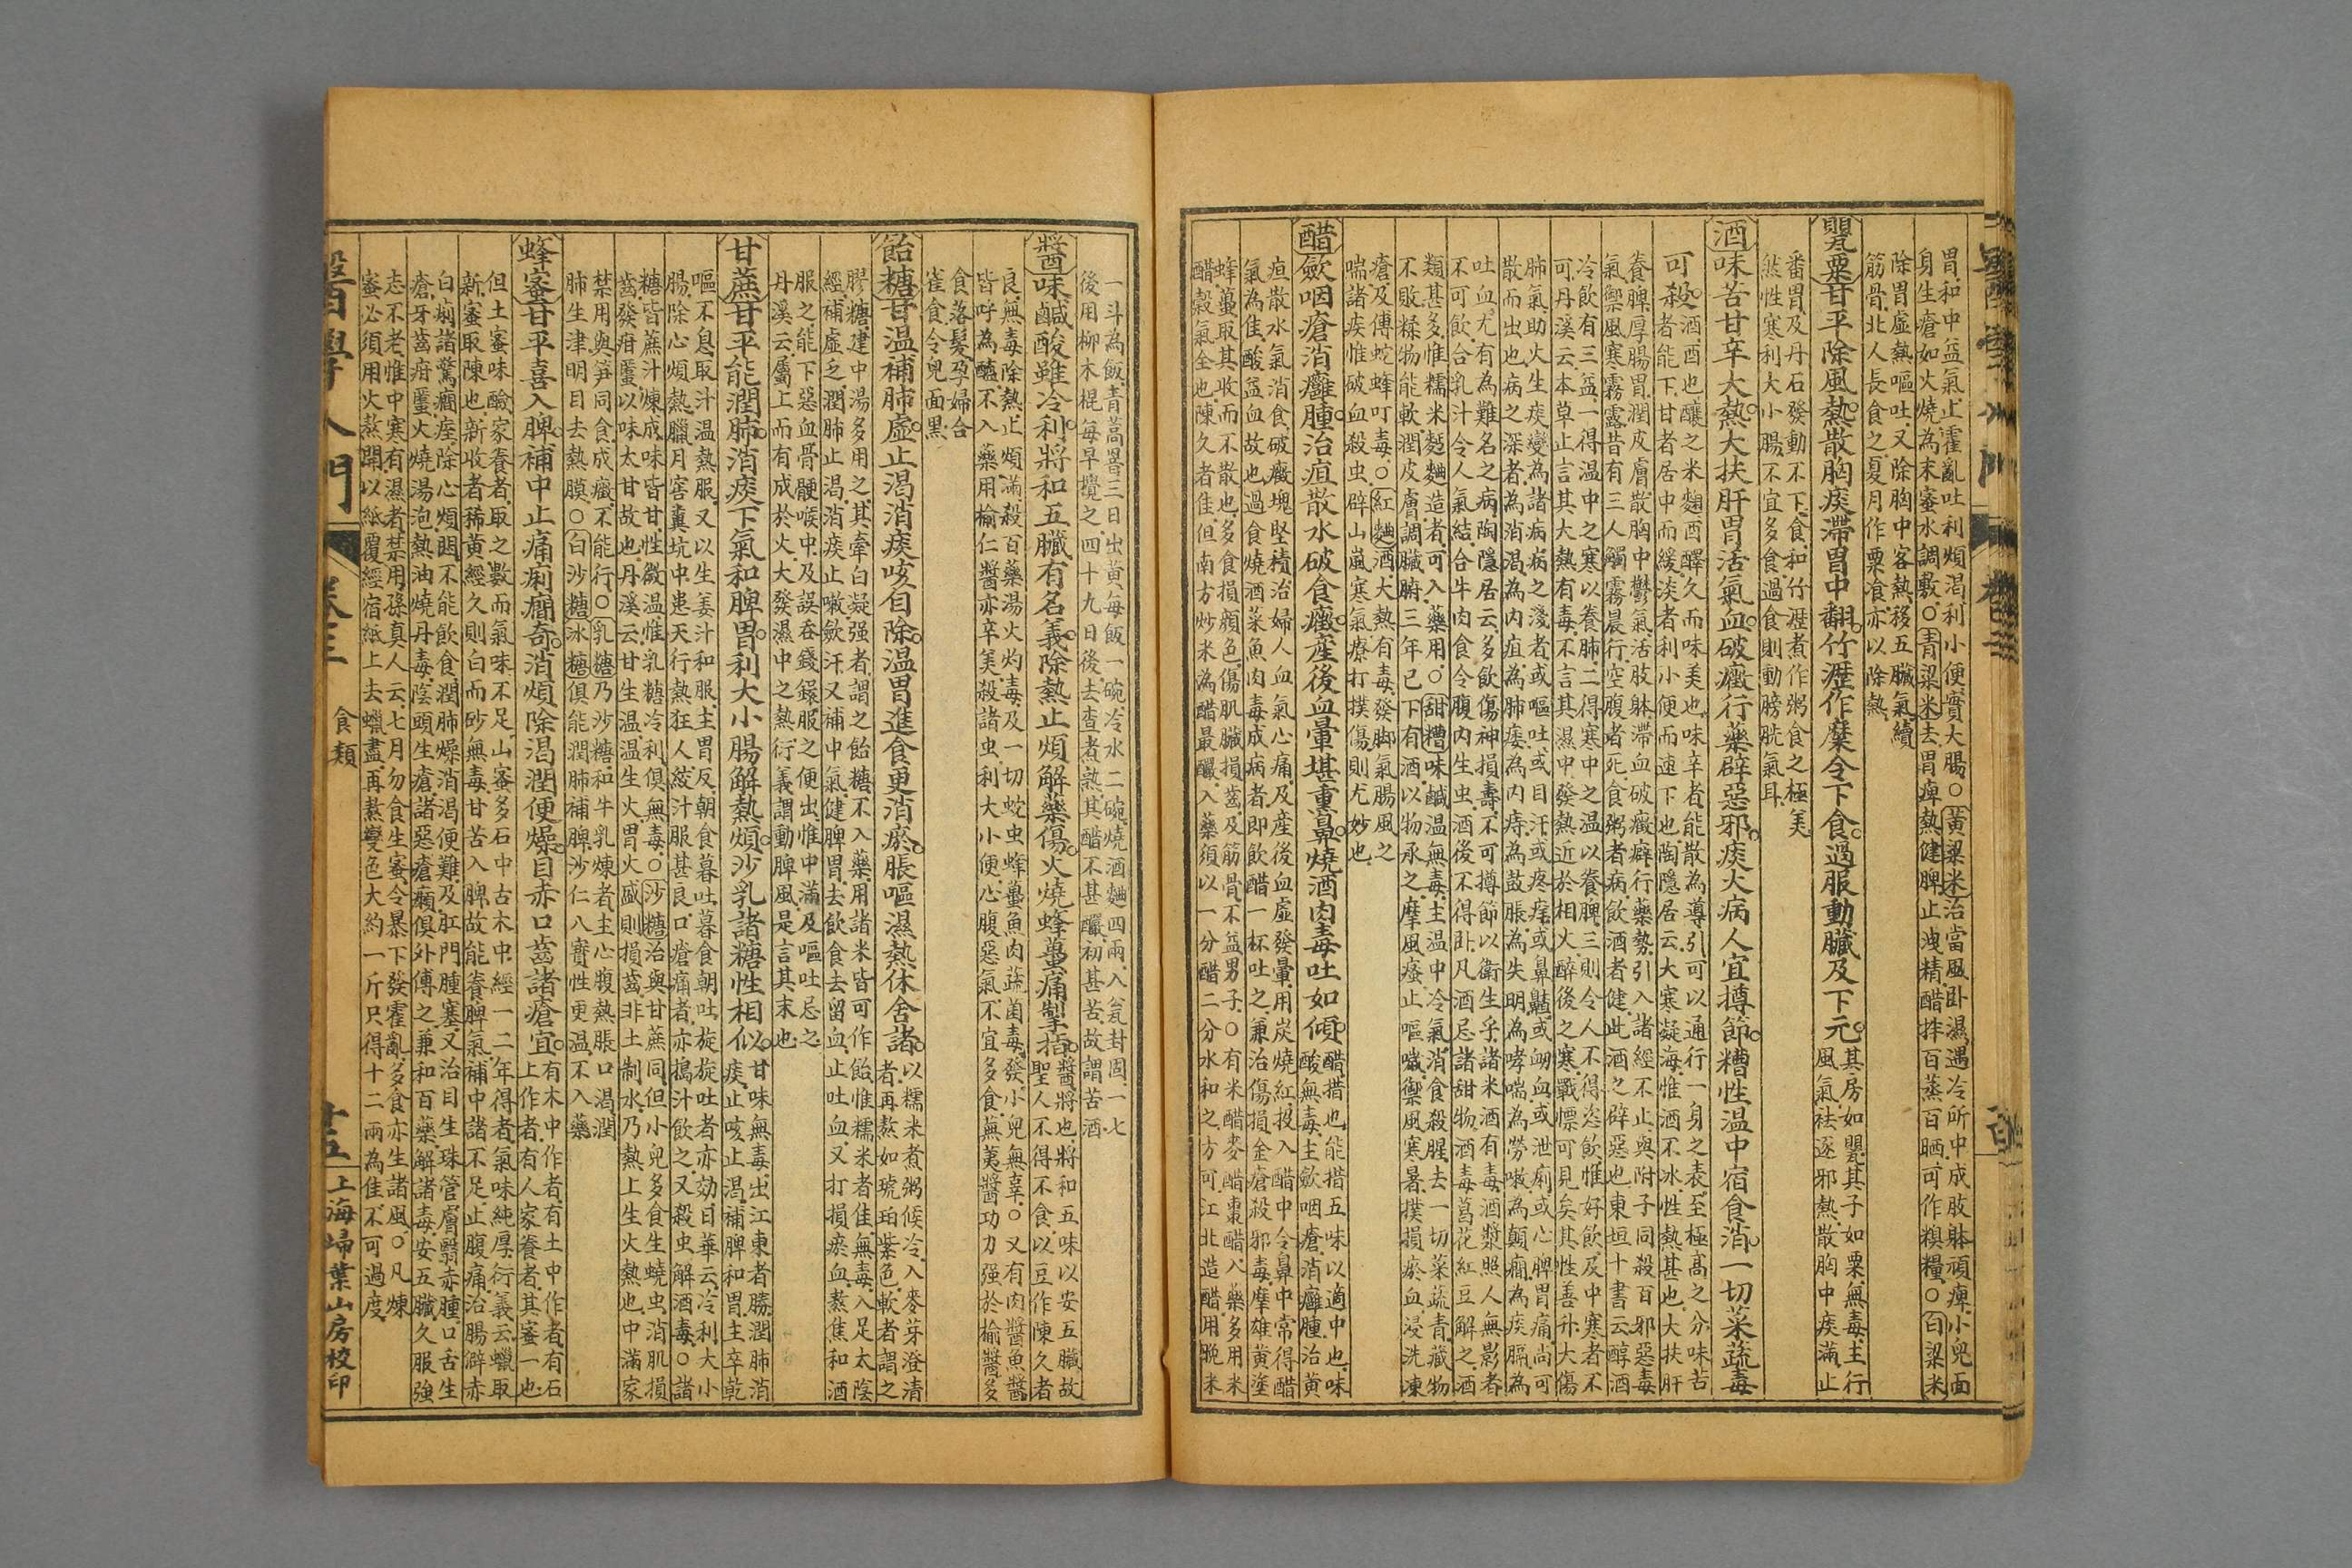 胃和中益氣止霍亂吐利煩渴利小便實大腸○黃粱米治當風卧濕遇冷所中成肢體頑痺小兒面
身生瘡如火燒為末蜜水調敷○青粱米去胃痺熱健脾止洩精醋拌百蒸百晒可作糗糧○白粱米
除胃虛熱嘔吐又除胸中客熱移五臟氣續
筋骨北人長食之夏月作粟飡亦以除熱
罌粟甘平除風熱散胸痰滯胃中翻竹瀝作糜令下食過服動臟及下元
其房如罌其子如粟無毒主行
風氣祛逐邪熱散胸中痰滿止
番胃及丹石發動不下食和竹瀝煮作粥食之極美
然性寒利大小腸不宜多食過食則動膀胱氣耳
酒味苦甘辛大熱大扶肝胃活氣血破癥行藥辟惡邪痰火病人宜撙節糟性温中宿食消一切菜蔬毒
可殺
酒酉也釀之米麴酉醳久而味美也味辛者能散為導引可以通行一身之表至極高之分味苦
者能下甘者居中而緩淡者利小便而速下也陶隱居云大寒凝海惟酒不冰性熱甚也大扶肝
養脾厚腸胃潤皮膚散胸中鬱氣活肢體滯血破癥癖行藥勢引入諸經不止與附子同殺百邪惡毒
氣禦風寒霧露昔有三人觸霧晨行空腹者死食粥者病飲酒者健此酒之辟惡也東垣十書云醇酒
冷飲有三益一得温中之寒以養肺二得寒中之温以養脾三則令人不得恣飲惟好飲及中寒者不
可丹溪云本草止言其大熱有毒不言其濕中發熱近於相火醉後之寒戰慄可見矣其性善升大傷
肺氣助火生痰變為諸病病之淺者或嘔吐或目汗或疼㾗或鼻齄或衂血或泄痢或心脾胃痛尚可
散而出也病之深者為消渴為內疽為肺痿為內痔為鼓脹為失明為哮喘為勞嗽為顛癇為痰膈為
吐血尤有為難名之病陶隱居云多飲傷神損壽不可撙節以衛生乎諸米酒有毒酒漿照人無影者
不可飲合乳汁令人氣結合牛肉食令腹內生虫酒後不得卧凡酒忌諸甜物酒毒葛花紅豆解之酒
類甚多惟糯米麵麯造者可入藥用○甜糟味鹹温無毒主温中冷氣消食殺腥去一切菜蔬青藏物
不敗糅物能軟潤皮膚調臟腑三年已下有酒以物承之摩風瘙止嘔噦禦風寒暑撲損瘀血浸洗凍
瘡及傅蛇蜂叮毒○紅麯酒大熱有毒發脚氣腸風之
喘諸疾惟破血殺虫辟山嵐寒氣療打撲傷則尤妙也
醋歛咽瘡消癰腫治疸散水破食癥產後血暈堪熏鼻燒酒肉毒吐如傾
醋措也能措五味以適中也味
酸無毒主歛咽瘡消癰腫治黃
疸散水氣消食破癥塊堅積治婦人血氣心痛及產後血虛發暈用炭燒紅投入醋中令鼻中常得醋
氣為佳酸益血故也過食燒酒菜魚肉毒成病者即飲醋一杯吐之兼治傷損金瘡殺邪毒摩雄黃塗
蜂蠆取其收而不散也多食損顏色傷肌臟損齒及筋骨不益男子○有米醋麥醋棗醋入藥多用米
醋穀氣全也陳久者佳但南方炒米為醋最釅入藥須以一分醋二分水和之方可江北造醋用晚米
一斗為飯青蒿罨三日出黃每飯一碗冷水二碗燒酒麯四兩入瓮封固一七
後用柳木棍每早攪之四十九日後去查煮熟其醋不甚釅初甚苦故謂苦酒
醬味鹹酸雖冷利將和五臟有名義除熱止煩解藥傷火燒蜂蠆痛掣指
醬將也將和五味以安五臟故
聖人不得不食以豆作陳久者
良無毒除熱止煩滿殺百藥湯火灼毒及一切蛇虫蜂蠆魚肉蔬菌毒發小兒無辜○又有肉醬魚醬
皆呼為醢不入藥用榆仁醬亦辛美殺諸虫利大小便心腹惡氣不宜多食蕪荑醬功力强於榆醬多
食落髮孕婦合
雀食令兒面黑
飴糖甘温補肺虛止渴消痰咳自除温胃進食更消瘀脹嘔濕熱休舍諸
以糯米煮粥候冷入麥芽澄清
者再熬如琥珀紫色軟者謂之
膠糖建中湯多用之其牽白凝强者謂之飴糖不入藥用諸米皆可作飴惟糯米者佳無毒入足太陰
經補虛之潤肺止渴消痰止嗽歛汗又補中氣健脾胃去飲食去留血止吐血又打損瘀血熬焦和酒
服之能下惡血骨骾喉中及誤吞錢鐶服之便出惟中滿及嘔吐忌之
丹溪云屬土而有成於火大發濕中之熱衍義謂動脾風是言其末也
甘蔗甘平能潤肺消痰下氣和脾胃利大小腸解熱煩沙乳諸糖性相似
甘味無毒出江東者勝潤肺消
痰止咳止渴補脾和胃主卒乾
嘔不息取汁温熱服又以生姜汁和服主胃反朝食暮吐暮食朝吐旋旋吐者亦効日華云冷利大小
腸除心煩熱臘月窖糞坑中患天行熱狂人絞汁服甚良口瘡痛者亦搗汁飲之又殺虫解酒毒○諸
糖皆蔗汁煉成味皆甘性微温惟乳糖冷利俱無毒○沙糖治與甘蔗同但小兒多食生蟯虫消肌損
齒發疳䘌以味太甘故也丹溪云甘生温温生火胃火盛則損齒非土制水乃熱上生火熱也中滿家
禁用與笋同食成癥不能行○乳糖乃沙糖和牛乳煉者主心腹熱脹口渴潤
肺生津明目去熱膜○白沙糖冰糖俱能潤肺補脾沙仁八寶性更温不入藥
蜂蜜甘平喜入脾補中止痛痢癇奇消煩除渴潤便燥目赤口齒諸瘡宜
有木中作者有土中作者有石
上作者有人家養者其蜜一也
但土蜜味醶家養者取之數而氣味不足山蜜多石中古木中經一二年得者氣味純厚衍義云蠟取
新蜜取陳也新收者稀黃經久則白而砂無毒甘苦入脾故能養脾氣補中諸不足止腹痛治腸澼赤
白痢諸驚癇痙除心煩悶不能飲食潤肺燥消渴便難及肛門腫塞又治目生珠管膚翳赤腫口舌生
瘡牙齒疳䘌火燒湯泡熱油燒丹毒陰頭生瘡諸惡瘡癩俱外傅之兼和百藥解諸毒安五臟久服强
志不老惟中寒有濕者禁用孫真人云七月勿食生蜜令暴下發霍亂多食亦生諸風○凡煉
蜜必須用火熬開以紙覆經宿紙上去蠟盡再熬變色大約一斤只得十二兩為佳不可過度
醫學入門
卷三
食類
十五
上海埽葉山房校印